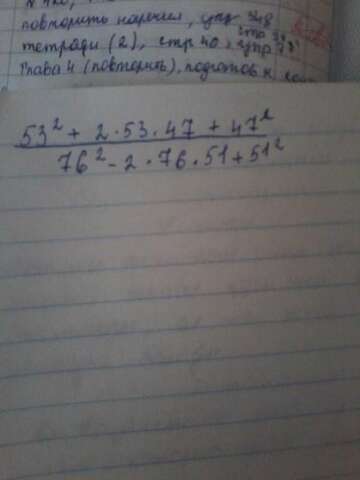 повторить наречия, упр 348
тетради (2), стр 40, упр
Глава 4 (повторить), подготов к
53² + 2·53·47 + 47²
76² - 2·76·51 + 51²